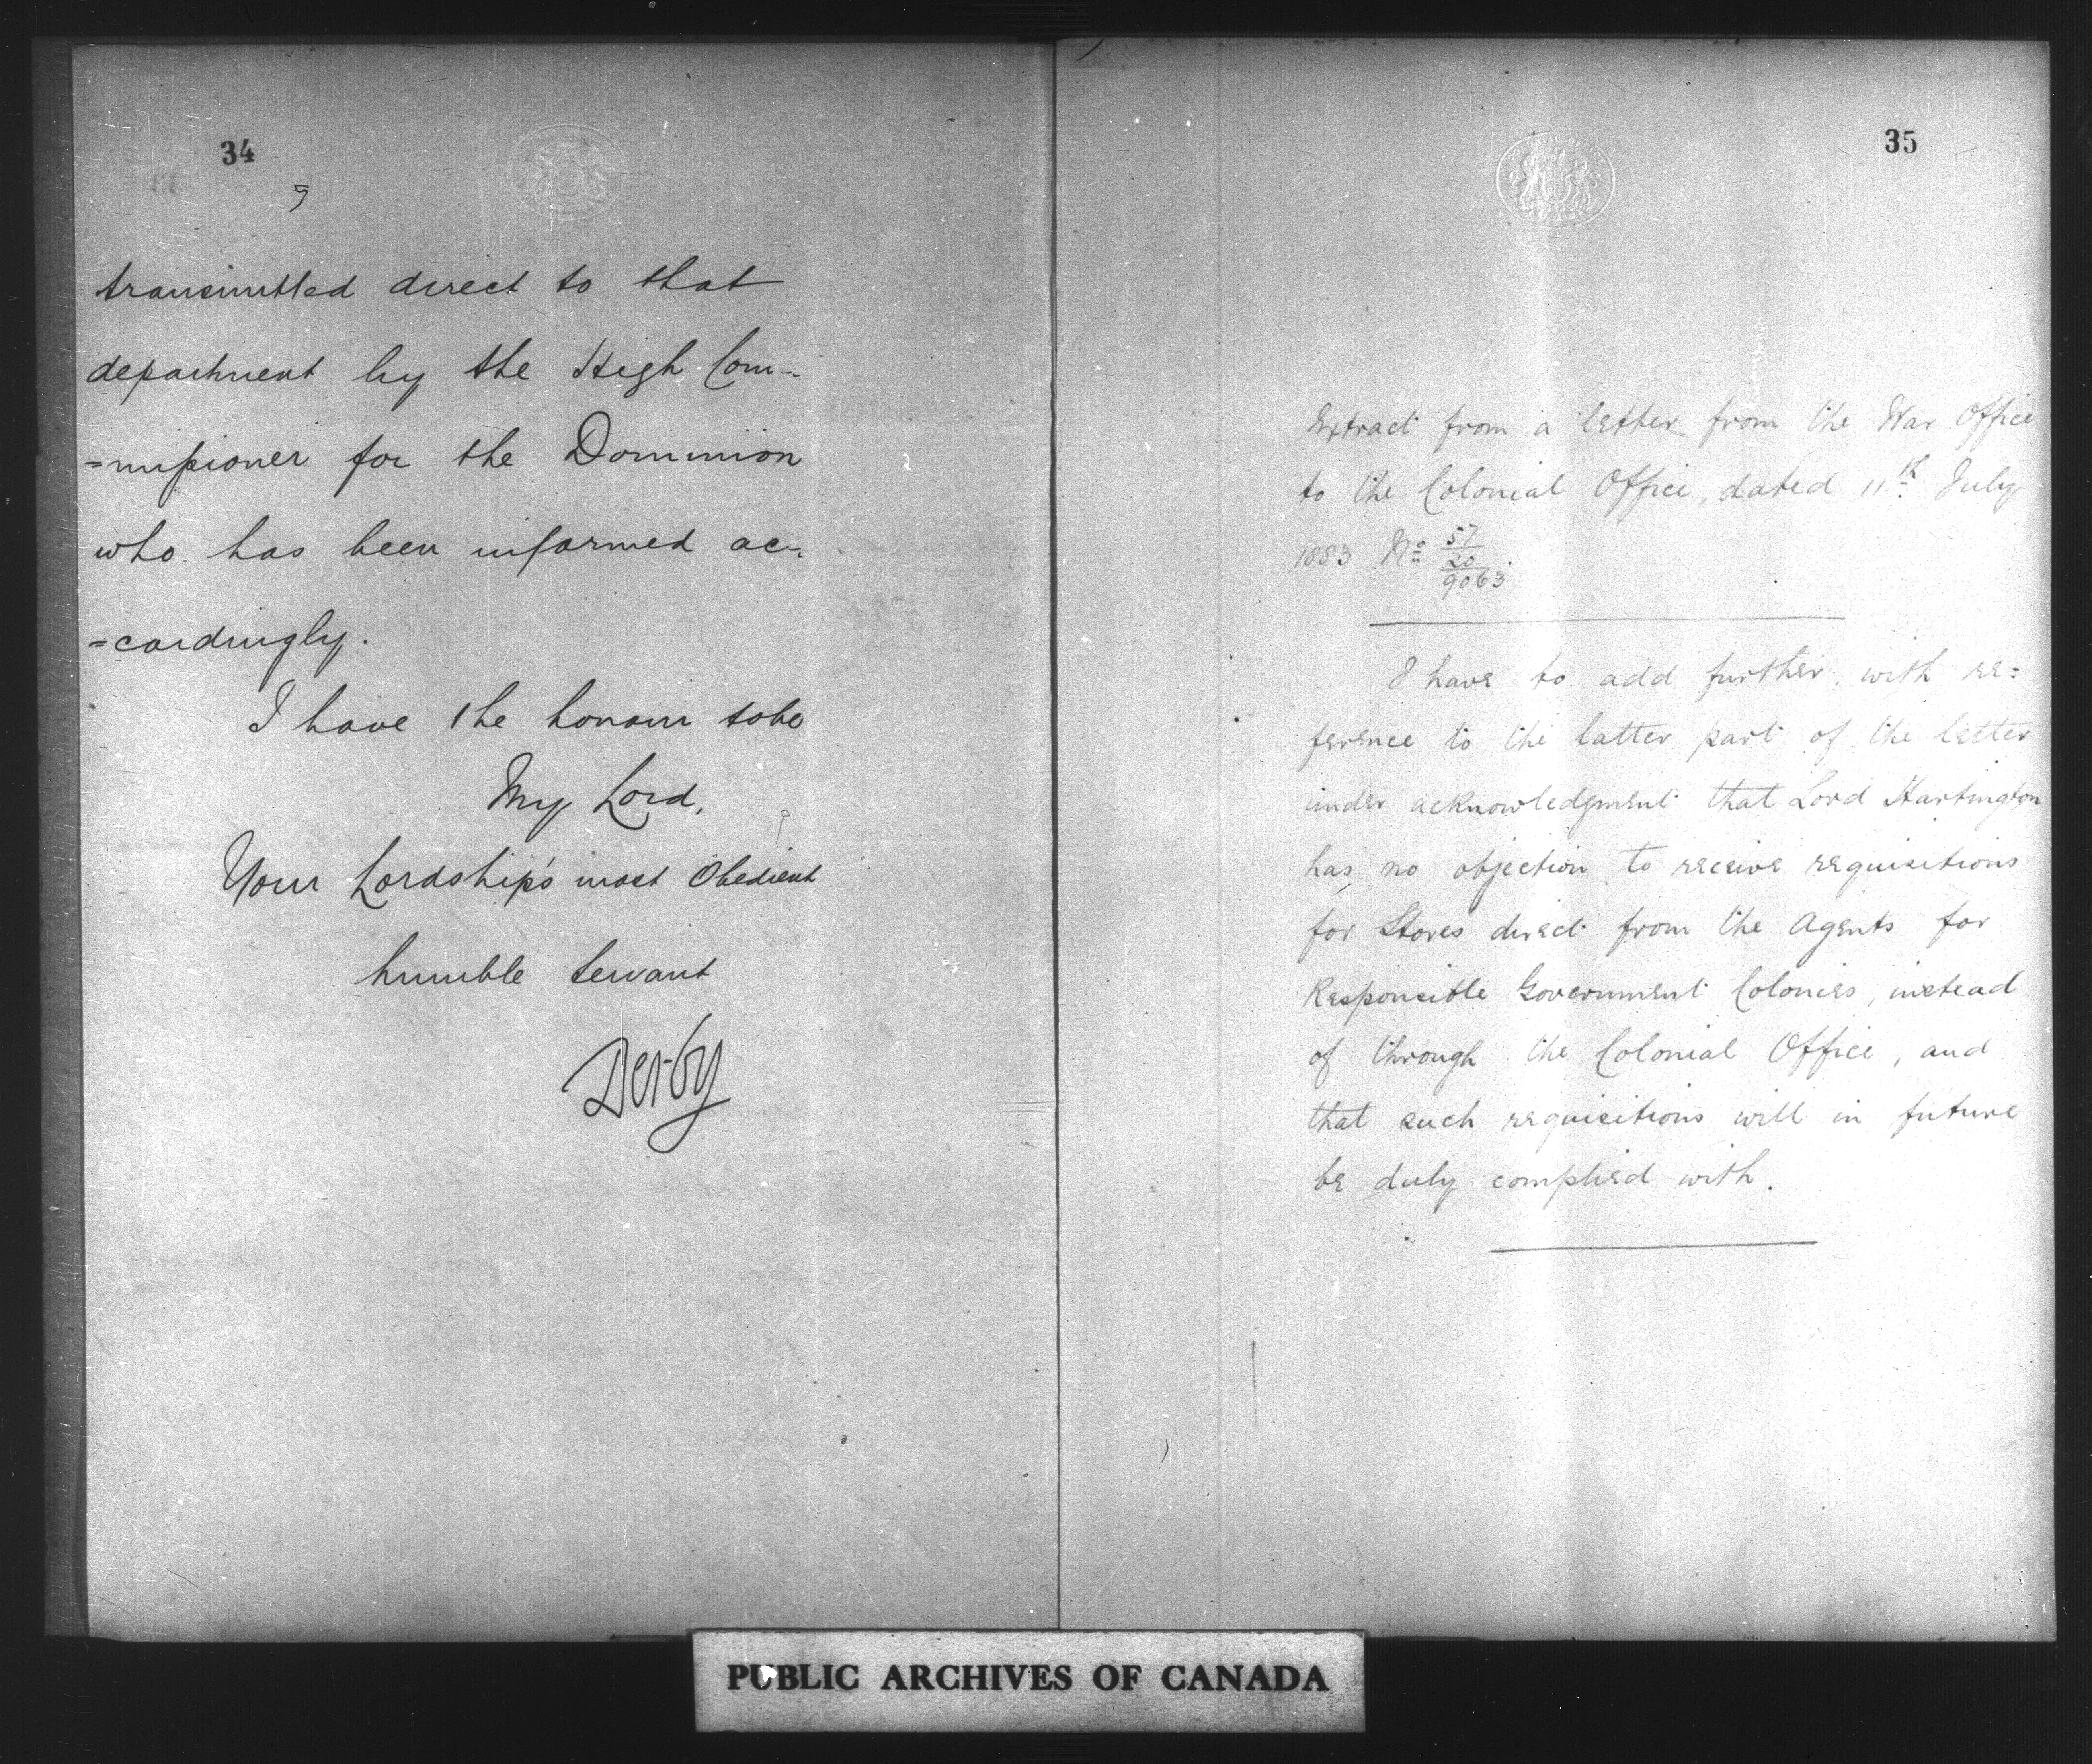 34
transmitted direct to that
department by the High Com-
=missioner for the Dominion
who has been informed ac-
=cordingly.
I have the honour to be
My Lord,
Your Lordship's most Obedient
humble Servant
Derby
35
Extract from a letter from the War Office
to the Colonial Office, dated 11th July
1883 No 57/20/9063.
I have to add further, with re=
ference to the latter part of the letter
under acknowledgment that Lord Hartington
has no objection to receive requisitions
for Stores direct from the Agents for
Responsible Government Colonies, instead
of through the Colonial Office, and
that such requisitions will in future
be duly complied with.
PUBLIC ARCHIVES OF CANADA